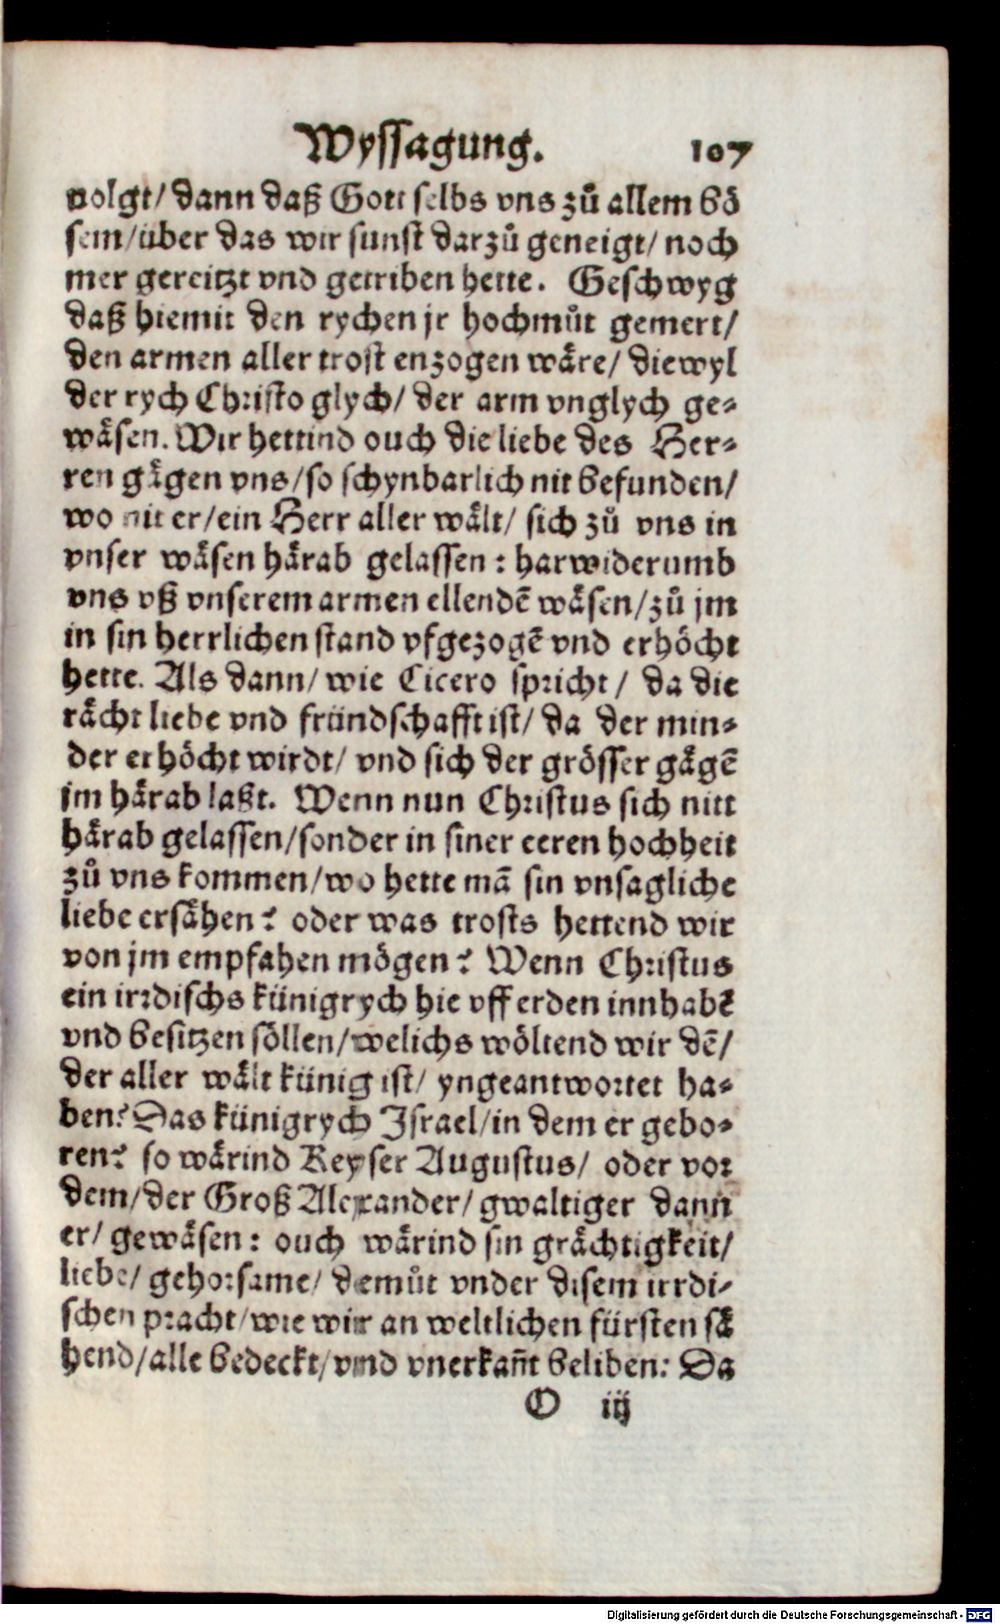 Wyssagung. 107
volgt/ dann daß Gott selbs vns zů allem bö
sem/über das wir sunst darzů geneigt/ noch
mer gereitzt vnd getriben hette. Geschwyg
daß hiemit den rychen jr hochmůt gemert/
den armen aller trost enzogen wäre/ diewyl
der rych Christo glych/ der arm vnglych ge-
wäsen. Wir hettind ouch die liebe des Her-
ren gägen vns/so schynbarlich nit befunden/
wo nit er/ein Herr aller wält/ sich zů vns in
vnser wäsen härab gelassen: harwiderumb
vns vß vnserem armen ellendē wäsen/zů jm
in sin herrlichen stand vfgezogē vnd erhöcht
hette. Als dann/ wie Cicero spricht/ da die
rächt liebe vnd fründschafft ist/ da der min-
der erhöcht wirdt/ vnd sich der grösser gägē
jm härab laßt. Wenn nun Christus sich nitt
härab gelassen/sonder in siner eeren hochheit
zů vns kommen/wo hette mā sin vnsagliche
liebe ersähen? oder was trosts hettend wir
von jm empfahen mögen? Wenn Christus
ein irrdischs künigrych hie vff erden innhabē
vnd besitzen söllen/welichs wöltend wir dē/
der aller wält künig ist/ yngeantwortet ha-
ben? Das künigrych Israel/in dem er gebo-
ren? so wärind Keyser Augustus/ oder vor
dem/der Groß Alexander/ gwaltiger dann
er/ gewäsen: ouch wärind sin grächtigkeit/
liebe/ gehorsame/ demůt vnder disem irrdi-
schen pracht/wie wir an weltlichen fürsten sä
hend/alle bedeckt/vnd vnerkañt beliben: Da
O iij
Digitalisierung gefördert durch die Deutsche Forschungsgemeinschaft - DFG